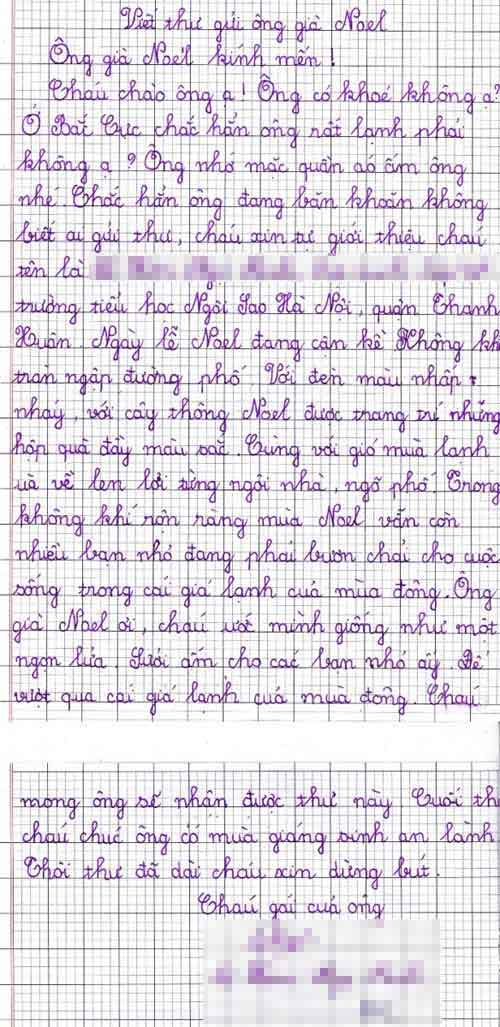 Viết thư gửi ông già Noel
Ông già Noel kính mến!
Cháu chào ông ạ! Ông có khoẻ không ạ?
Ở Bắc Cực chắc hẳn ông rất lạnh phải
không ạ? Ông nhớ mặc quần áo ấm ông
nhé. Chắc hẳn ông đang băn khoăn không
biết ai gửi thư, cháu xin tự giới thiệu cháu
tên là
trường tiểu học Ngôi Sao Hà Nội, quận Thanh
Xuân. Ngày lễ Noel đang cận kề Không kh
tràn ngập đường phố Với đèn màu nhấp
nháy, với cây thông Noel được trang trí những
hộp quà đầy màu sắc. Cùng với gió mùa lạnh
ùa về len lỏi từng ngôi nhà, ngõ phố. Trong
không khí rộn ràng mùa Noel vẫn còn
nhiều bạn nhỏ đang phải bươn chải cho cuộc
sống trong cái giá lạnh của mùa đông. Ông
già Noel ơi, cháu ước mình giống như một
ngọn lửa. Sưởi ấm cho các bạn nhỏ ấy. Để
vượt qua cái giá lạnh của mùa đông. Cháu
mong ông sẽ nhận được thư này Cuối th
cháu chúc ông có mùa giáng sinh an lành
Thôi thư đã dài cháu xin dừng bút.
Cháu gái của ông